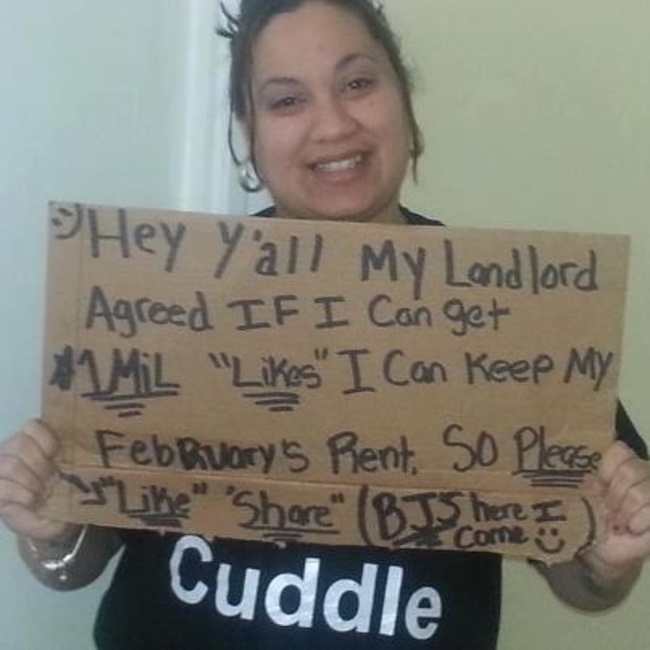 :) Hey Y'all My Landlord
Agreed IF I Can get
1 MiL "Likes" I Can Keep My
February's Rent. SO Please
"Like" "Share" (BJ'S here I
come :)
Cuddle